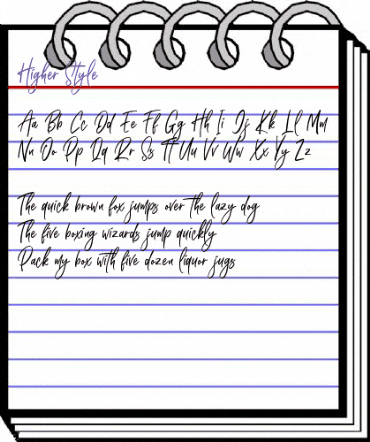 Higher Style
Aa Bb Cc Dd Ee Ff Gg Hh Ii Jj Kk Ll Mm
Nn Oo Pp Qq Rr Ss Tt Uu Vv Ww Xx Yy Zz
The quick brown fox jumps over the lazy dog
The five boxing wizards jump quickly
Pack my box with five dozen liquor jugs